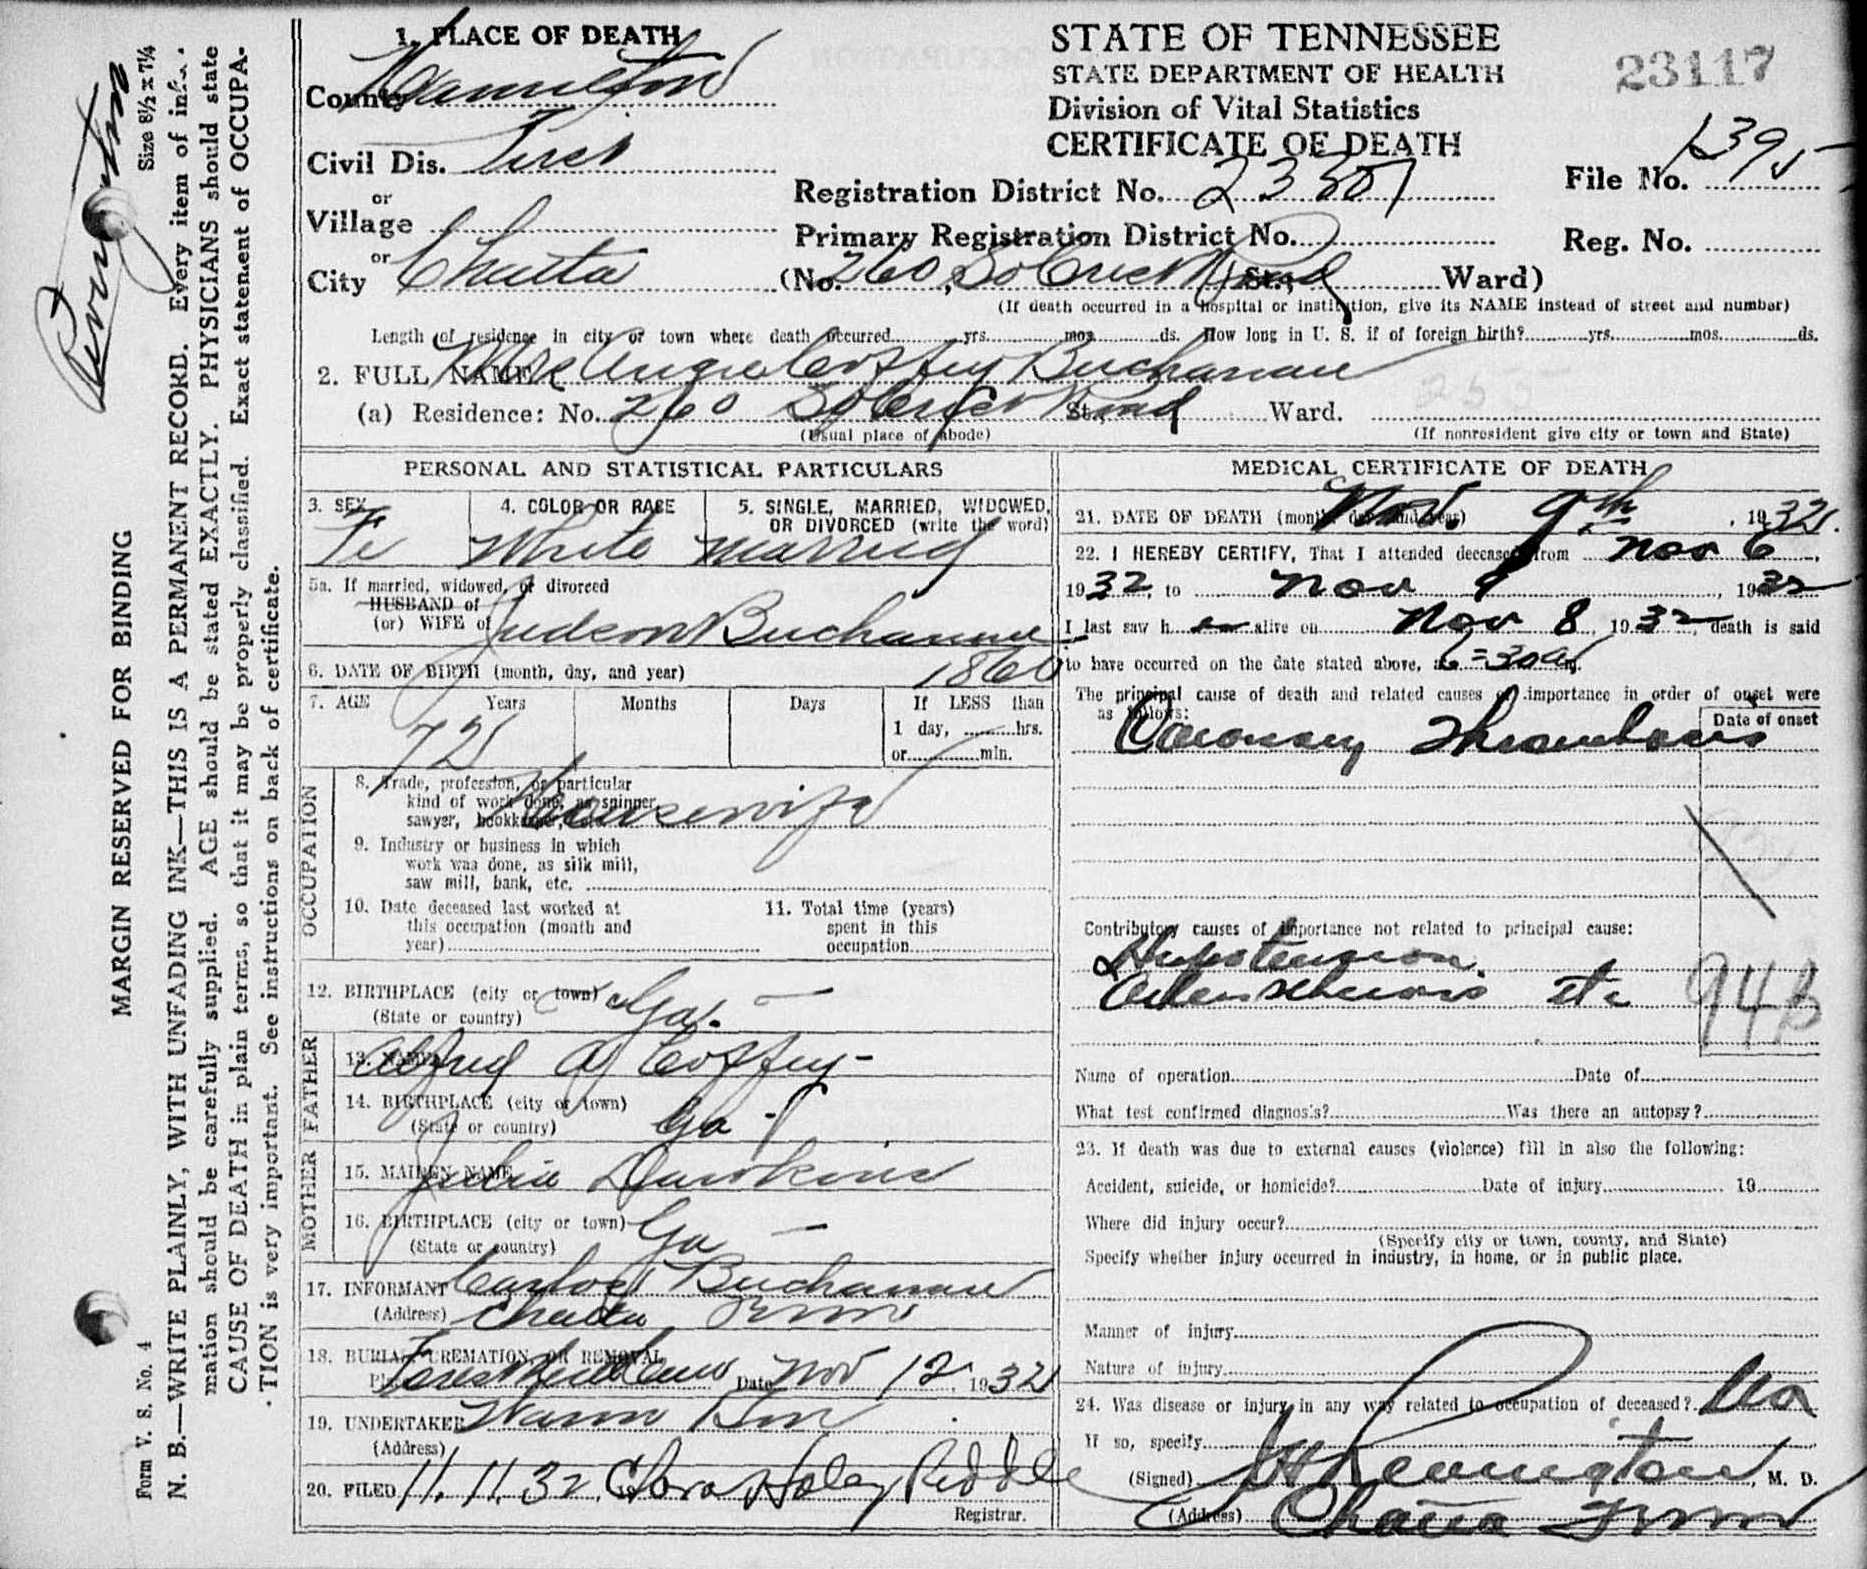 1. PLACE OF DEATH
County Hamilton
Civil Dis. First
or
Village
or
City Chatta
STATE OF TENNESSEE
STATE DEPARTMENT OF HEALTH
Division of Vital Statistics
CERTIFICATE OF DEATH
23117
Registration District No.
File No. 1395
Primary Registration District No.
Reg. No.
(No. 260, So Crest Road St., Ward)
(If death occurred in a hospital or institution, give its NAME instead of street and number)
Length of residence in city or town where death occurred yrs. mos. ds. How long in U. S. if of foreign birth? yrs. mos. ds.
2. FULL NAME Mrs Angie Coffey Buchanan
(a) Residence: No. 260 So Crest Road St., Ward.
(Usual place of abode)
(If nonresident give city or town and State)
PERSONAL AND STATISTICAL PARTICULARS
3. SEX
Fe
4. COLOR OR RACE
White
5. SINGLE, MARRIED, WIDOWED, OR DIVORCED (write the word)
married
5a. If married, widowed, or divorced
HUSBAND of
(or) WIFE of Judson Buchanan
6. DATE OF BIRTH (month, day, and year) 1860
7. AGE Years Months Days If LESS than
1 day, hrs.
or min.
72
OCCUPATION
8. Trade, profession, or particular
kind of work done, as spinner,
sawyer, bookkeeper, etc. Housewife
9. Industry or business in which
work was done, as silk mill,
saw mill, bank, etc.
10. Date deceased last worked at
this occupation (month and
year)
11. Total time (years)
spent in this
occupation
12. BIRTHPLACE (city or town) Ga.
(State or country)
FATHER
13. NAME Alfred A Coffey
14. BIRTHPLACE (city or town)
(State or country) Ga
MOTHER
15. MAIDEN NAME Julia Dawkins
16. BIRTHPLACE (city or town) Ga
(State or country)
17. INFORMANT Buchanan
(Address) Chatta Tenn
18. BURIAL, CREMATION, OR REMOVAL
Place Forest Hill Cem Date Nov 12, 1932
19. UNDERTAKER Wann
(Address)
20. FILED 11.11.32, 19 Clara Holey Riddle
Registrar.
MEDICAL CERTIFICATE OF DEATH
21. DATE OF DEATH (month, day, and year) Nov. 9th, 1932.
22. I HEREBY CERTIFY, That I attended deceased from Nov 6,
1932, to Nov 9, 1932
I last saw her alive on Nov 8, 1932, death is said
to have occurred on the date stated above, at 6:30am.
The principal cause of death and related causes of importance in order of onset were
as follows:
Date of onset
Coronary Thrombosis
Contributory causes of importance not related to principal cause:
Hypertension
Arteriosclerosis etc
94B
Name of operation Date of
What test confirmed diagnosis? Was there an autopsy?
23. If death was due to external causes (violence) fill in also the following:
Accident, suicide, or homicide? Date of injury 19
Where did injury occur?
(Specify city or town, county, and State)
Specify whether injury occurred in industry, in home, or in public place.
Manner of injury
Nature of injury
24. Was disease or injury in any way related to occupation of deceased? No
If so, specify
(Signed) Revington, M. D.
(Address) Chatta Tenn
MARGIN RESERVED FOR BINDING
Size 8½ x 7¼
N. B.—WRITE PLAINLY, WITH UNFADING INK—THIS IS A PERMANENT RECORD. Every item of infor-
mation should be carefully supplied. AGE should be stated EXACTLY. PHYSICIANS should state
CAUSE OF DEATH in plain terms, so that it may be properly classified. Exact statement of OCCUPA-
TION is very important. See instructions on back of certificate.
Form V. S. No. 4